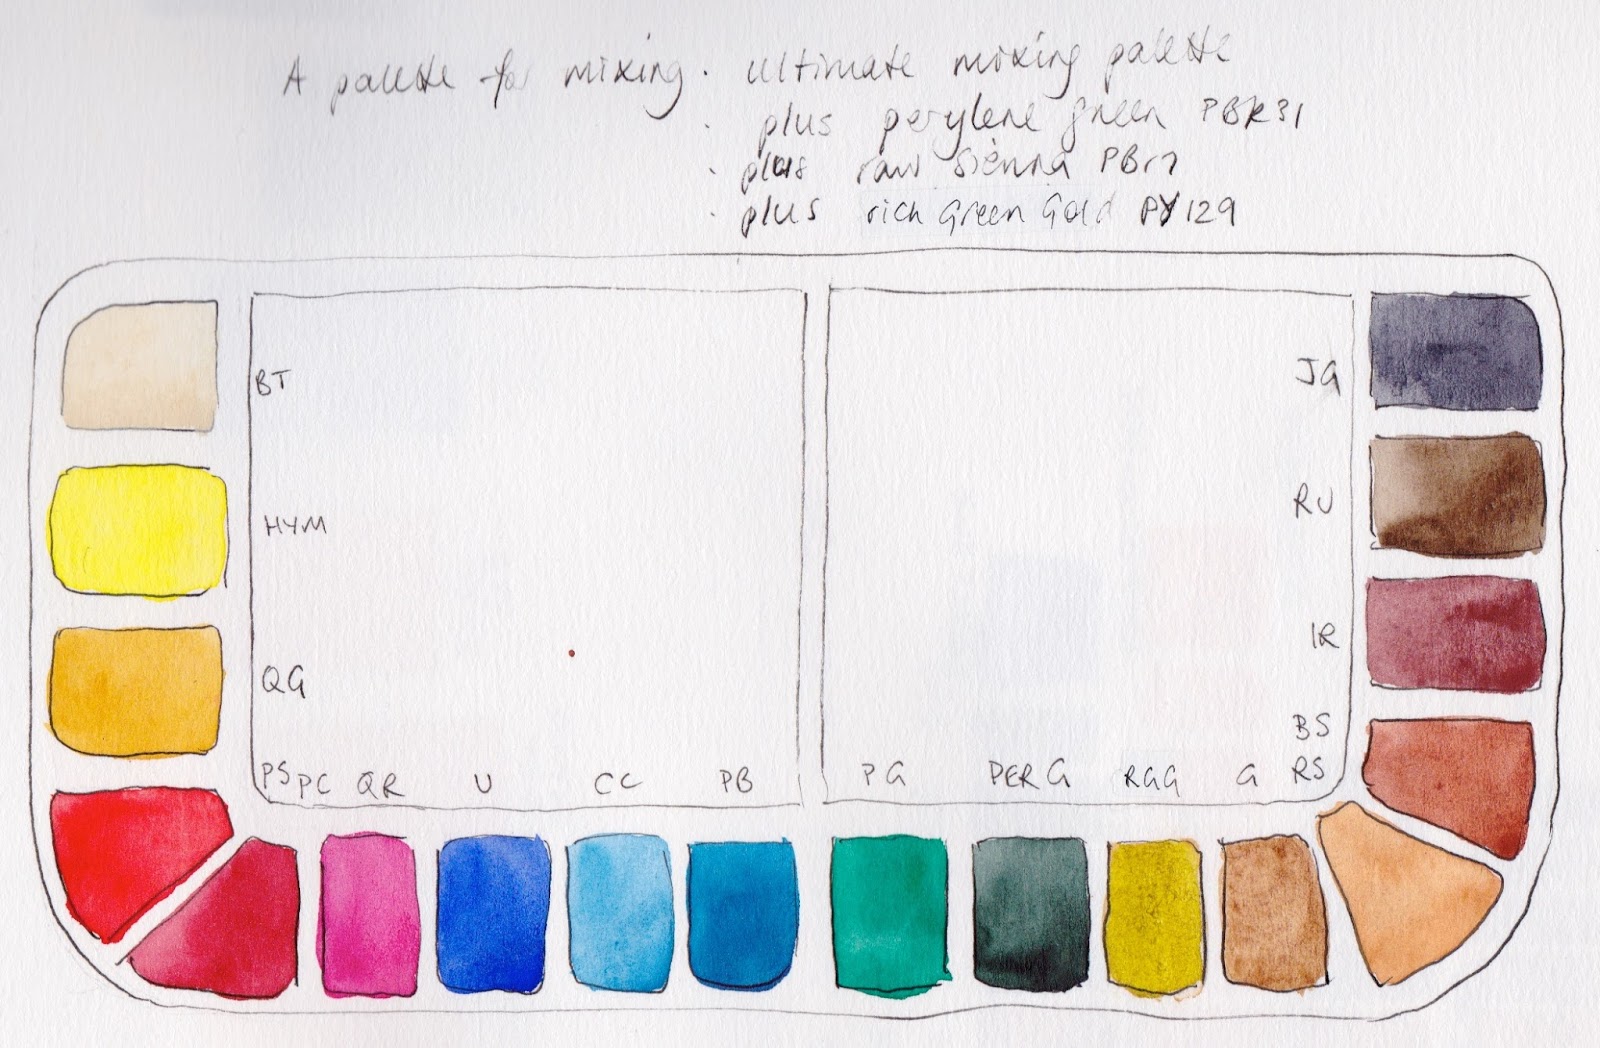 A palette for mixing · ultimate mixing palette
· plus perylene green PBK31
· plus raw sienna PBr7
· plus rich Green Gold PY129
BT
JG
HYM
RU
QG
IR
BS
PS PC QR U CC PB PG PER G RGG G RS